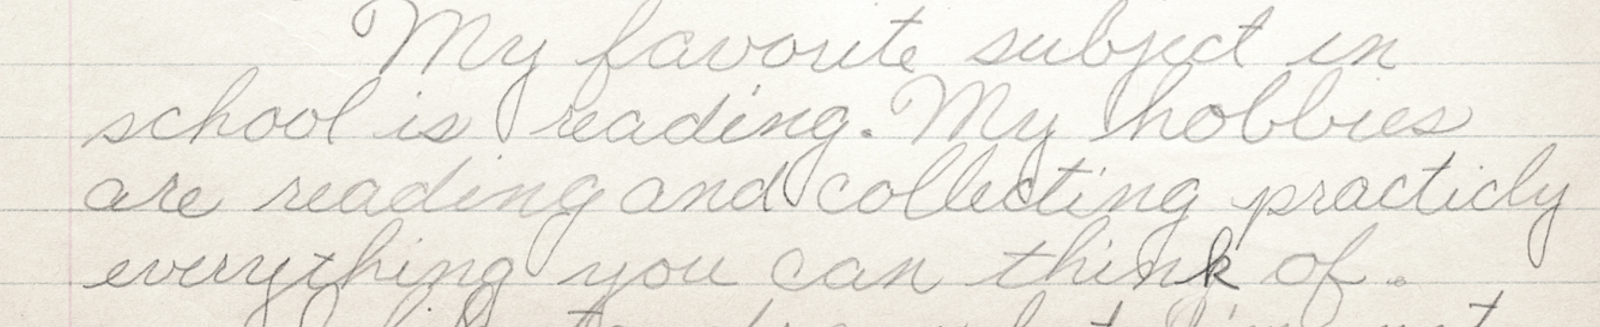 My favorite subject in
school is reading. My hobbies
are reading and collecting practicly
everything you can think of.